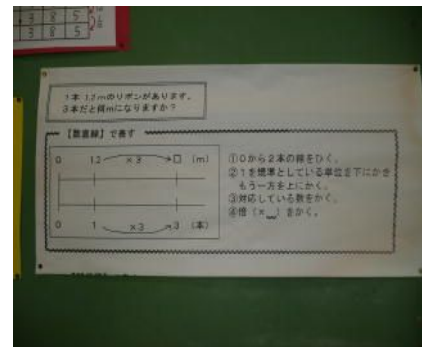 3 8 5
3 8 5
1本 1.2mのリボンがあります。
3本だと何mになりますか?
【数直線】で表す
0 1.2 ×3 □ (m)
0 1 ×3 3 (本)
①0から2本の線をひく。
②1を標準としている単位を下にかき
もう一方を上にかく。
③対応している数をかく。
④倍(×＿)をかく。